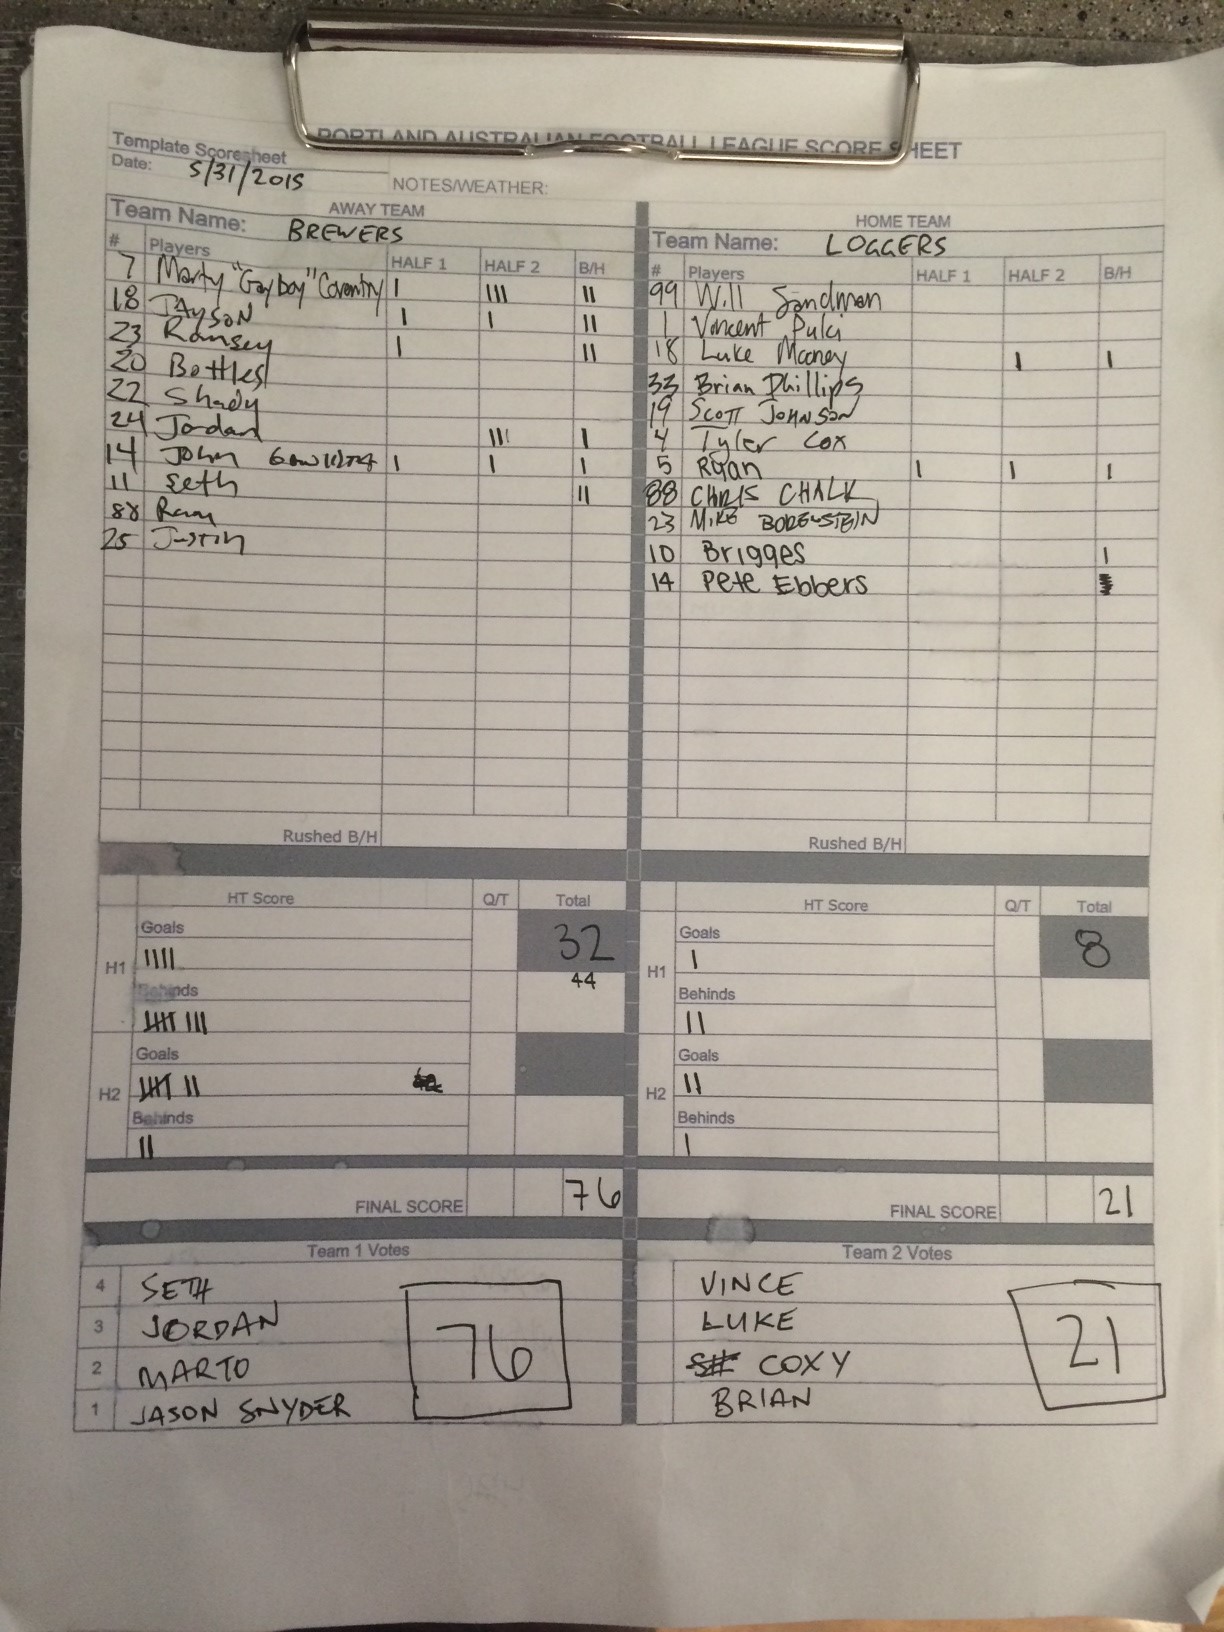 PORTLAND AUSTRALIAN FOOTBALL LEAGUE SCORE SHEET
Template Scoresheet
Date: 5/31/2015
NOTES/WEATHER:
AWAY TEAM
Team Name: BREWERS
# Players HALF 1 HALF 2 B/H
7 Marty "Gayboy" Coventry I III II
18 JAYSON I I II
23 Ramsey I II
20 Bottles
22 Shady
24 Jordan III I
14 John I I I
11 Seth II
88
25 Justin
Rushed B/H
HOME TEAM
Team Name: LOGGERS
# Players HALF 1 HALF 2 B/H
99 Will Sandman
1 Vincent Pulci
18 Luke Mooney I I
33 Brian Phillips
19 SCOTT JOHNSON
4 Tyler Cox
5 Ryan I I I
88 CHRIS CHALK
23 MIKE BORENSTEIN
10 Brigges I
14 Pete Ebbers
Rushed B/H
HT Score Q/T Total
Goals
H1 IIII 32
44
Behinds
IIII III
Goals
H2 IIII II
Behinds
II
FINAL SCORE 76
HT Score Q/T Total
Goals
H1 I 8
Behinds
II
Goals
H2 II
Behinds
I
FINAL SCORE 21
Team 1 Votes
4 SETH
3 JORDAN
2 MARTO
1 JASON SNYDER
76
Team 2 Votes
VINCE
LUKE
COXY
BRIAN
21